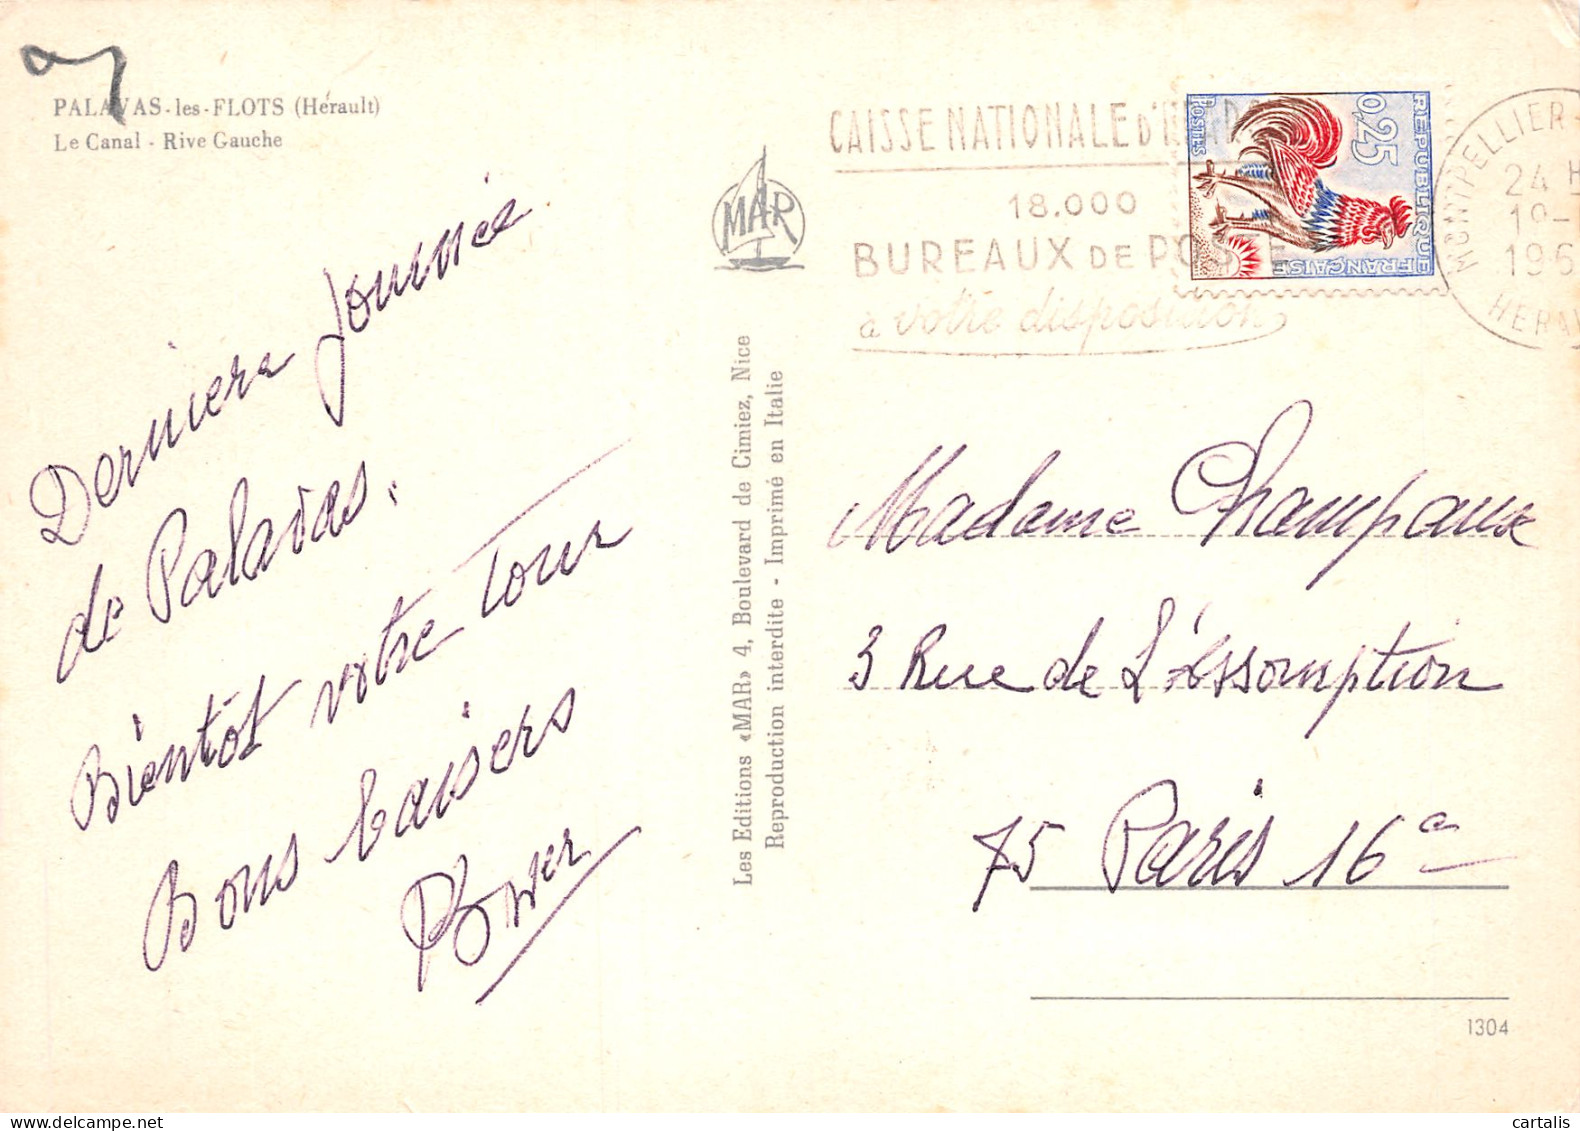 PALAVAS-les-FLOTS (Hérault)
Le Canal - Rive Gauche
Derniere Journée
de Palavas.
Bientôt votre Tour
Bons baisers
MAR
Les Editions «MAR» 4, Boulevard de Cimiez, Nice
Reproduction interdite - Imprimé en Italie
CAISSE NATIONALE D'
18.000
BUREAUX DE POSTE
à votre disposition
REPUBLIQUE FRANÇAISE
0,25
POSTES
MONTPELLIER
24 H
19-
196
HERAU
Madame Champaux
3 Rue de L'Assomption
75 Paris 16e
1304
cartalis